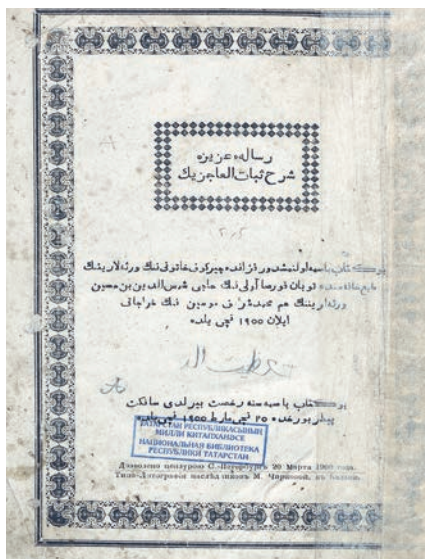 رساله‌ء عزيزه
شرح ثبات العاجزيك
بو كتاب باسمه اولنمشدور قزانده چيركوف خاتونى نك ورثه لارينك
طبع خانه سنده توبان قورصا آولى نك حاجى شمس الدين بن حسين
ورثه لرينك هم محمدشريف مومين نك خراجاتى
ايلان ١٩٠٠ نچى يلده
بو كتاب باسمه سنه رخصت بيرلدى سانكت
پيطربورغده ٢٥ نچى مارط ١٩٠٠ نچى يلده
ТАТАРСТАН РЕСПУБЛИКАСЫНЫҢ
МИЛЛИ КИТАПХАНӘСЕ
НАЦИОНАЛЬНАЯ БИБЛИОТЕКА
РЕСПУБЛИКИ ТАТАРСТАН
Дозволено цензурою С.-Петербургъ 20 Марта 1900 года.
Типо-Литографія наслѣдниковъ М. Чирковой, въ Казани.